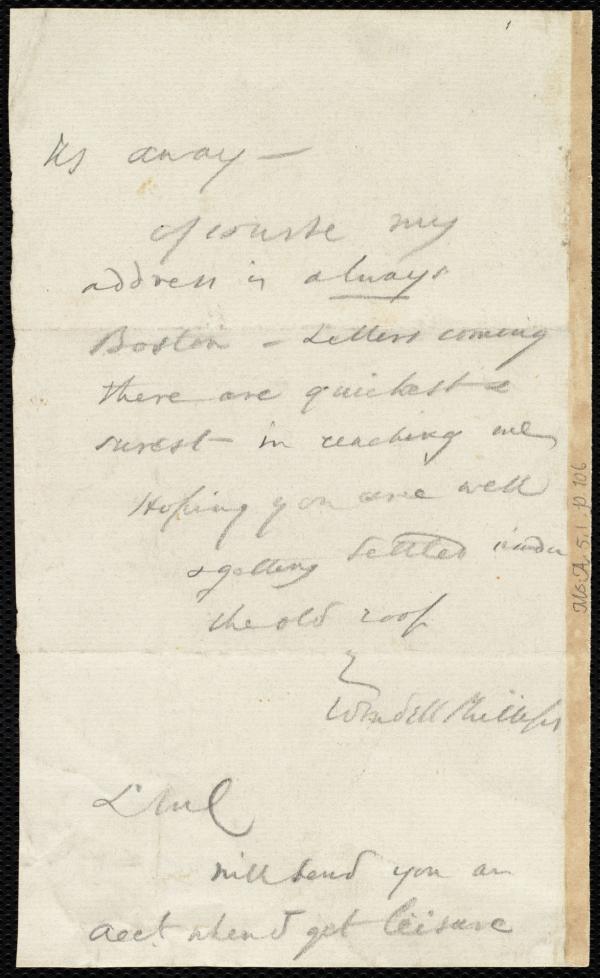 away —
of course my
address is always
Boston – Letters coming
there are quickest &
surest in reaching me
Hoping you are well
& getting settled under
the old roof
Wendell Phillips
will send you an
acct when I get leisure
Ms.A.5.1 p.106